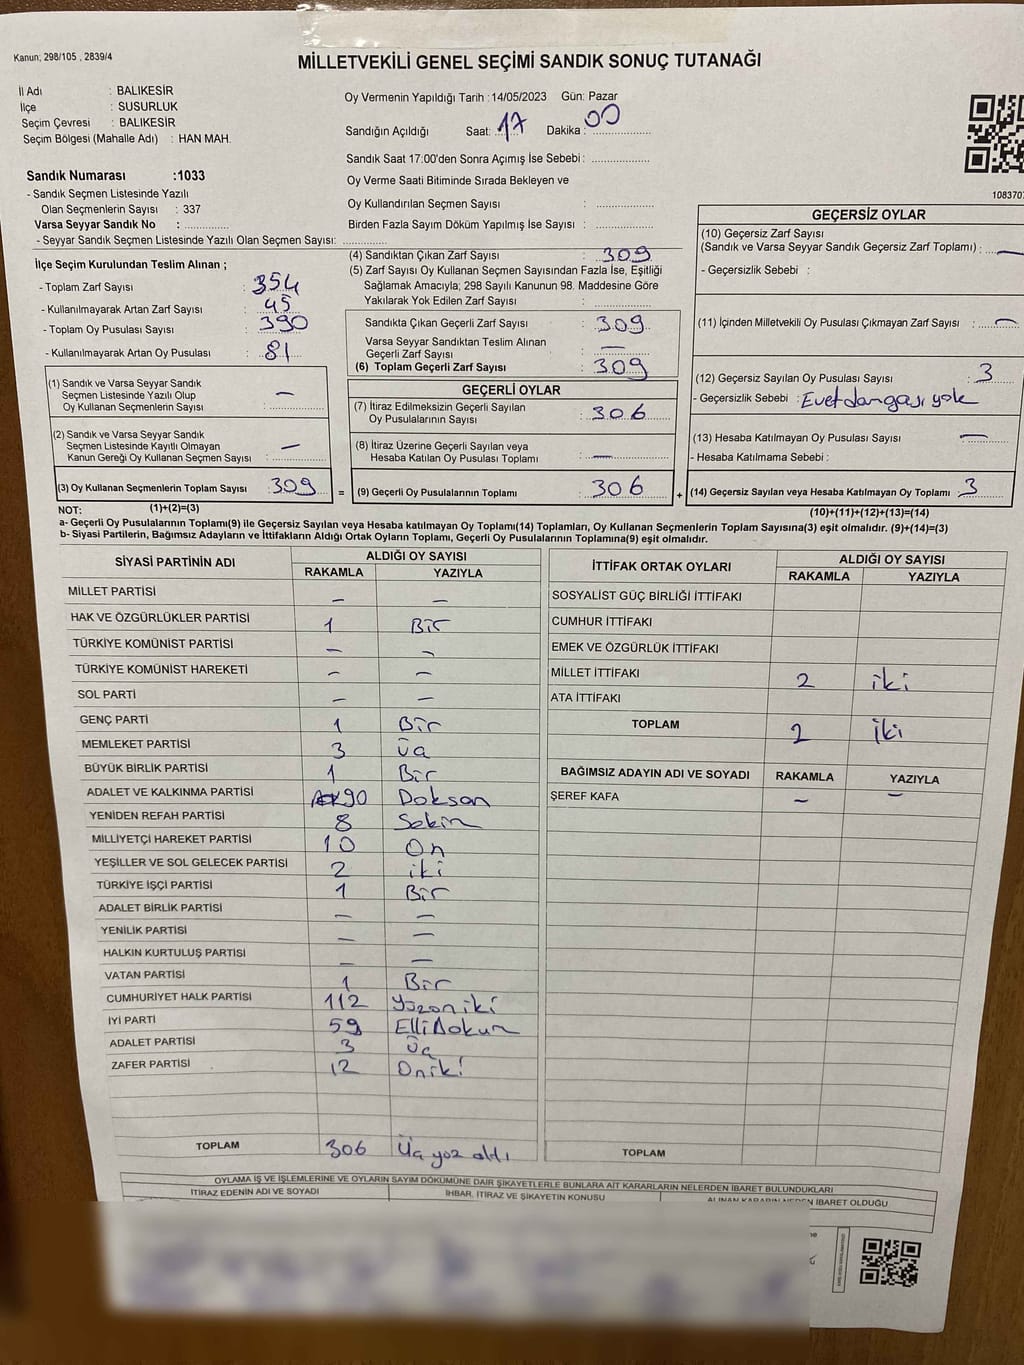 Kanun; 298/105 , 2839/4
MİLLETVEKİLİ GENEL SEÇİMİ SANDIK SONUÇ TUTANAĞI
İl Adı : BALIKESİR
İlçe : SUSURLUK
Seçim Çevresi : BALIKESİR
Seçim Bölgesi (Mahalle Adı) : HAN MAH.
Oy Vermenin Yapıldığı Tarih :14/05/2023 Gün: Pazar
Sandığın Açıldığı Saat: 17 Dakika : 00
Sandık Saat 17:00'den Sonra Açımış İse Sebebi :
Oy Verme Saati Bitiminde Sırada Bekleyen ve
Oy Kullandırılan Seçmen Sayısı :
Birden Fazla Sayım Döküm Yapılmış İse Sayısı :
Sandık Numarası :1033
- Sandık Seçmen Listesinde Yazılı
Olan Seçmenlerin Sayısı : 337
Varsa Seyyar Sandık No :
- Seyyar Sandık Seçmen Listesinde Yazılı Olan Seçmen Sayısı:
İlçe Seçim Kurulundan Teslim Alınan ;
- Toplam Zarf Sayısı : 354
- Kullanılmayarak Artan Zarf Sayısı : 45
- Toplam Oy Pusulası Sayısı : 390
- Kullanılmayarak Artan Oy Pusulası : 81
(1) Sandık ve Varsa Seyyar Sandık
Seçmen Listesinde Yazılı Olup
Oy Kullanan Seçmenlerin Sayısı : —
(2) Sandık ve Varsa Seyyar Sandık
Seçmen Listesinde Kayıtlı Olmayan
Kanun Gereği Oy Kullanan Seçmen Sayısı : —
(3) Oy Kullanan Seçmenlerin Toplam Sayısı : 309
(4) Sandıktan Çıkan Zarf Sayısı : 309
(5) Zarf Sayısı Oy Kullanan Seçmen Sayısından Fazla İse, Eşitliği
Sağlamak Amacıyla; 298 Sayılı Kanunun 98. Maddesine Göre
Yakılarak Yok Edilen Zarf Sayısı :
Sandıkta Çıkan Geçerli Zarf Sayısı : 309
Varsa Seyyar Sandıktan Teslim Alınan
Geçerli Zarf Sayısı : —
(6) Toplam Geçerli Zarf Sayısı : 309
GEÇERLİ OYLAR
(7) İtiraz Edilmeksizin Geçerli Sayılan
Oy Pusulalarının Sayısı : 306
(8) İtiraz Üzerine Geçerli Sayılan veya
Hesaba Katılan Oy Pusulası Toplamı : —
= (9) Geçerli Oy Pusulalarının Toplamı : 306
108370
GEÇERSİZ OYLAR
(10) Geçersiz Zarf Sayısı
(Sandık ve Varsa Seyyar Sandık Geçersiz Zarf Toplamı) : —
- Geçersizlik Sebebi :
(11) İçinden Milletvekili Oy Pusulası Çıkmayan Zarf Sayısı : —
(12) Geçersiz Sayılan Oy Pusulası Sayısı : 3
- Geçersizlik Sebebi : Evet damgası yok
(13) Hesaba Katılmayan Oy Pusulası Sayısı : —
- Hesaba Katılmama Sebebi :
+ (14) Geçersiz Sayılan veya Hesaba Katılmayan Oy Toplamı : 3
NOT: (1)+(2)=(3) (10)+(11)+(12)+(13)=(14)
a- Geçerli Oy Pusulalarının Toplamı(9) ile Geçersiz Sayılan veya Hesaba katılmayan Oy Toplamı(14) Toplamları, Oy Kullanan Seçmenlerin Toplam Sayısına(3) eşit olmalıdır. (9)+(14)=(3)
b- Siyasi Partilerin, Bağımsız Adayların ve İttifakların Aldığı Ortak Oyların Toplamı, Geçerli Oy Pusulalarının Toplamına(9) eşit olmalıdır.
SİYASİ PARTİNİN ADI ALDIĞI OY SAYISI
RAKAMLA YAZIYLA
MİLLET PARTİSİ — —
HAK VE ÖZGÜRLÜKLER PARTİSİ 1 Bir
TÜRKİYE KOMÜNİST PARTİSİ — —
TÜRKİYE KOMÜNİST HAREKETİ — —
SOL PARTİ — —
GENÇ PARTİ 1 Bir
MEMLEKET PARTİSİ 3 Üç
BÜYÜK BİRLİK PARTİSİ 1 Bir
ADALET VE KALKINMA PARTİSİ 90 Doksan
YENİDEN REFAH PARTİSİ 8 Sekiz
MİLLİYETÇİ HAREKET PARTİSİ 10 On
YEŞİLLER VE SOL GELECEK PARTİSİ 2 iki
TÜRKİYE İŞÇİ PARTİSİ 1 Bir
ADALET BİRLİK PARTİSİ — —
YENİLİK PARTİSİ — —
HALKIN KURTULUŞ PARTİSİ — —
VATAN PARTİSİ 1 Bir
CUMHURİYET HALK PARTİSİ 112 Yüzoniki
İYİ PARTİ 59 Elli Dokuz
ADALET PARTİSİ 3 Üç
ZAFER PARTİSİ 12 Oniki
TOPLAM 306 Üç yüz altı
İTTİFAK ORTAK OYLARI ALDIĞI OY SAYISI
RAKAMLA YAZIYLA
SOSYALİST GÜÇ BİRLİĞİ İTTİFAKI
CUMHUR İTTİFAKI
EMEK VE ÖZGÜRLÜK İTTİFAKI
MİLLET İTTİFAKI 2 iki
ATA İTTİFAKI
TOPLAM 2 iki
BAĞIMSIZ ADAYIN ADI VE SOYADI RAKAMLA YAZIYLA
ŞEREF KAFA — —
TOPLAM
OYLAMA İŞ VE İŞLEMLERİNE VE OYLARIN SAYIM DÖKÜMÜNE DAİR ŞİKAYETLERLE BUNLARA AİT KARARLARIN NELERDEN İBARET BULUNDUKLARI
İTİRAZ EDENİN ADI VE SOYADI İHBAR, İTİRAZ VE ŞİKAYETİN KONUSU ALINAN KARARIN NEDEN İBARET OLDUĞU